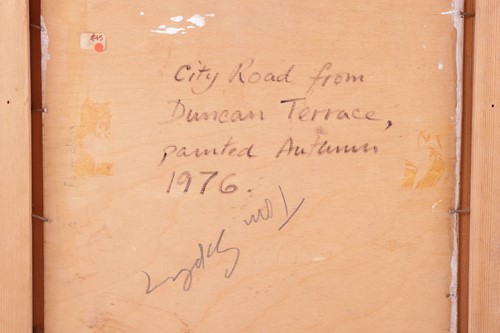 City Road from
Duncan Terrace,
painted Autumn
1976.